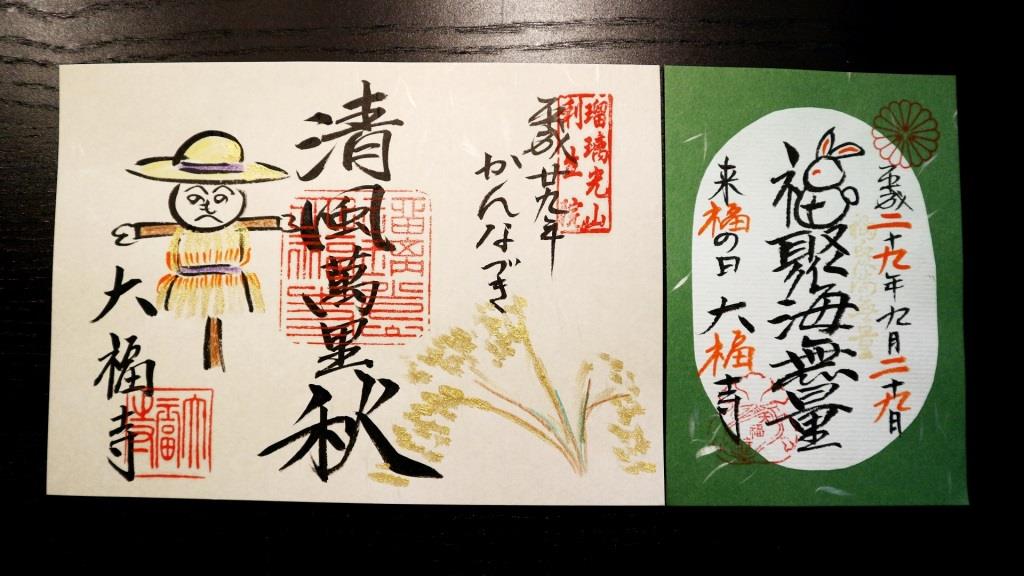 平成二十九年九月二十九日
福聚海無量
来福の日 大福寺
瑠璃光山
利生院
平成廿九年
かんなづき
清風萬里秋
大福寺
大福寺